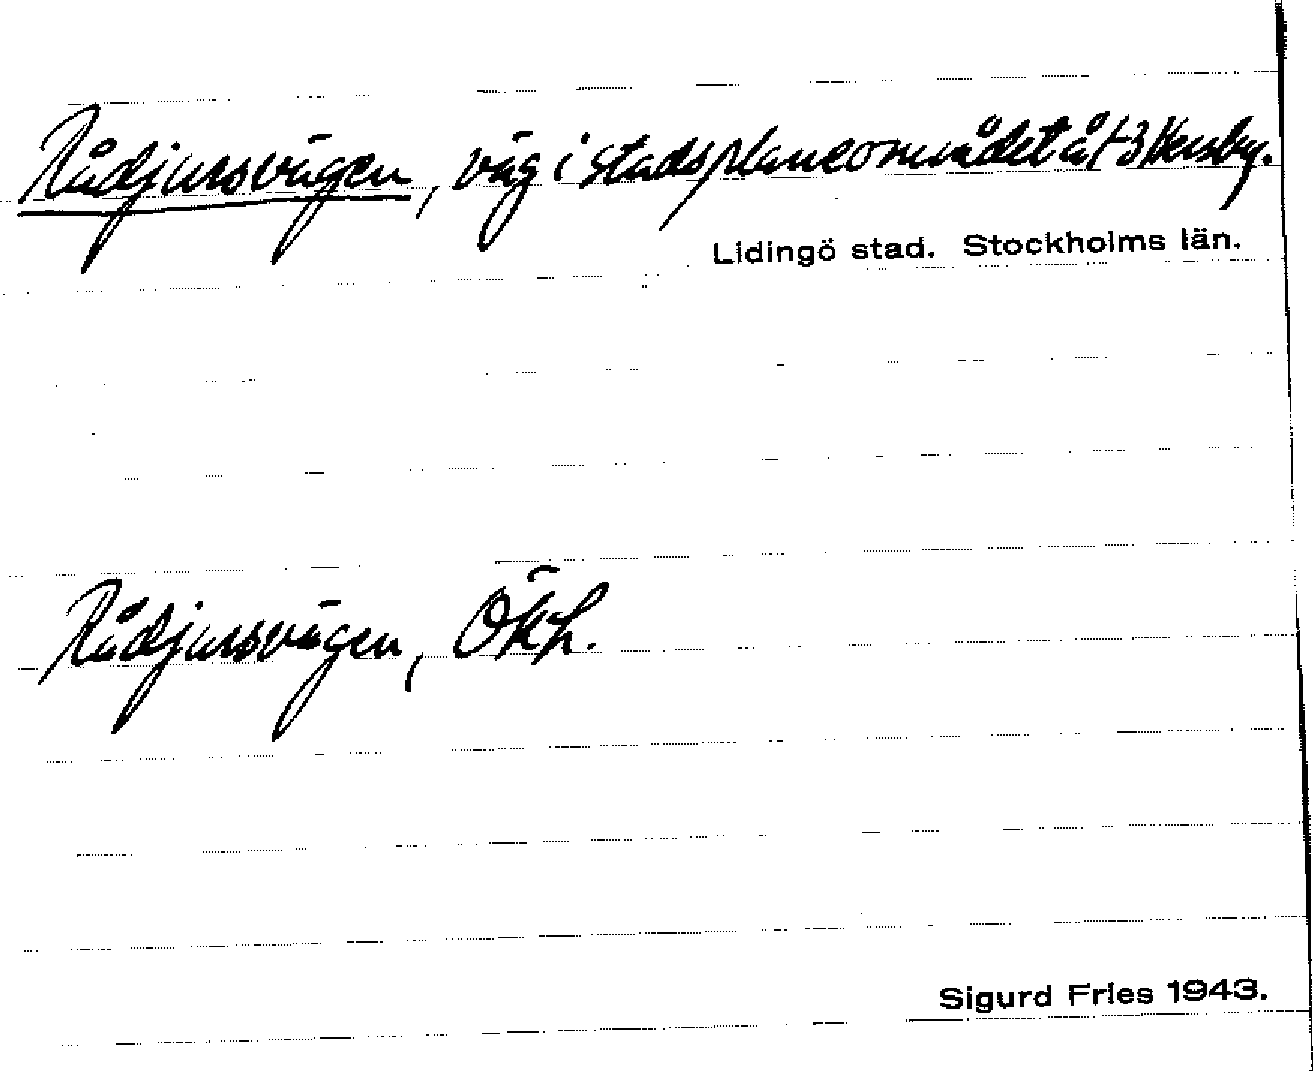 Rådjursvägen, väg i stadsplaneområdet å 1-3 Hersby.
Lidingö stad. Stockholms län.
Rådjursvägen, Ökh.
Sigurd Fries 1943.